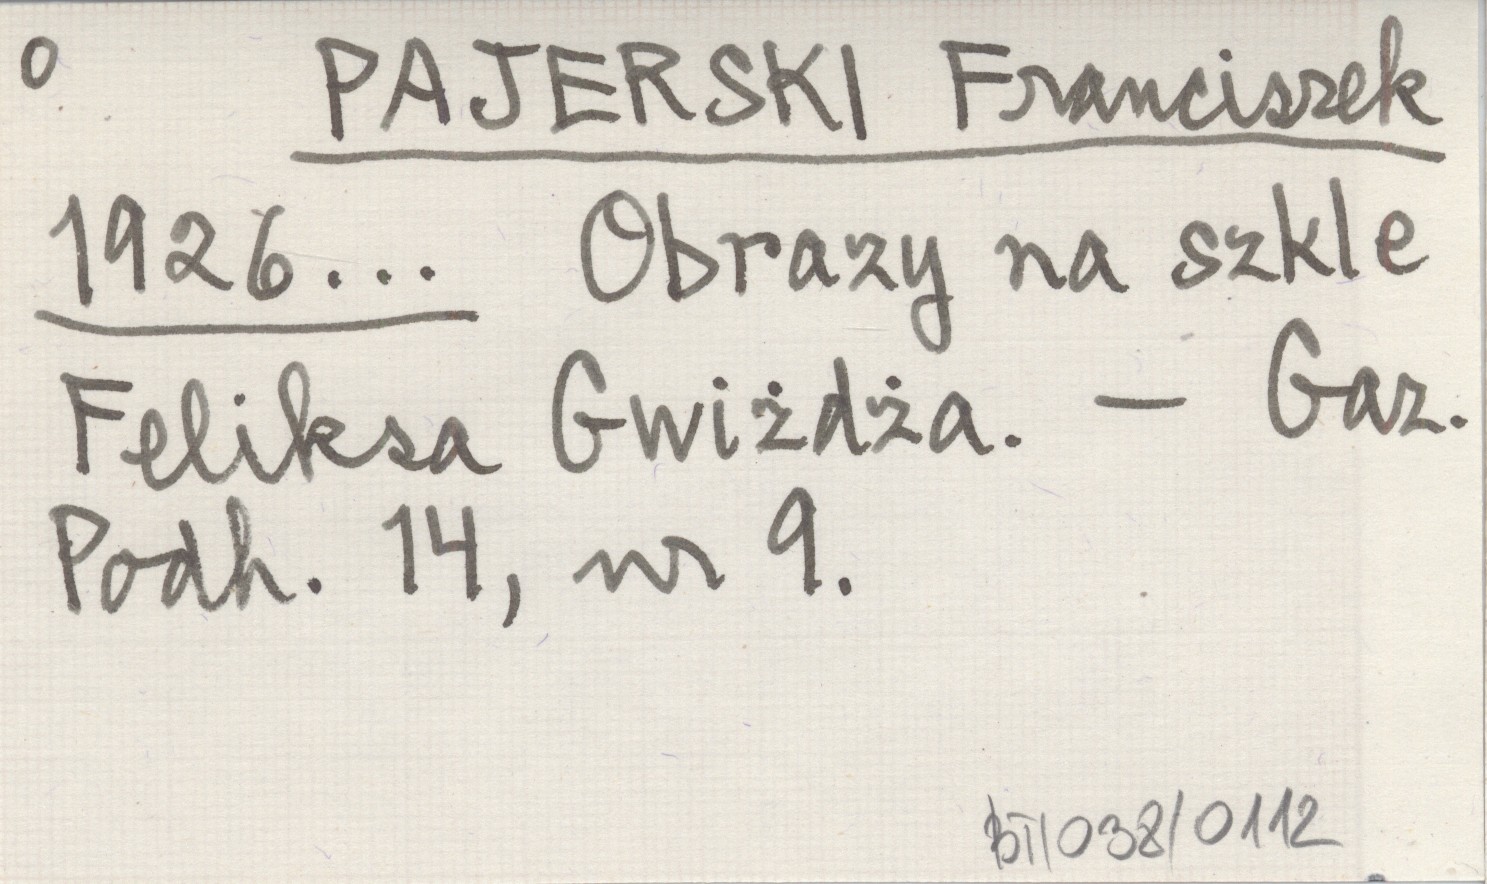 o PAJERSKI Franciszek
1926... Obrazy na szkle
Feliksa Gwiżdża. — Gaz.
Podh. 14, nr 9.
BT/038/0112